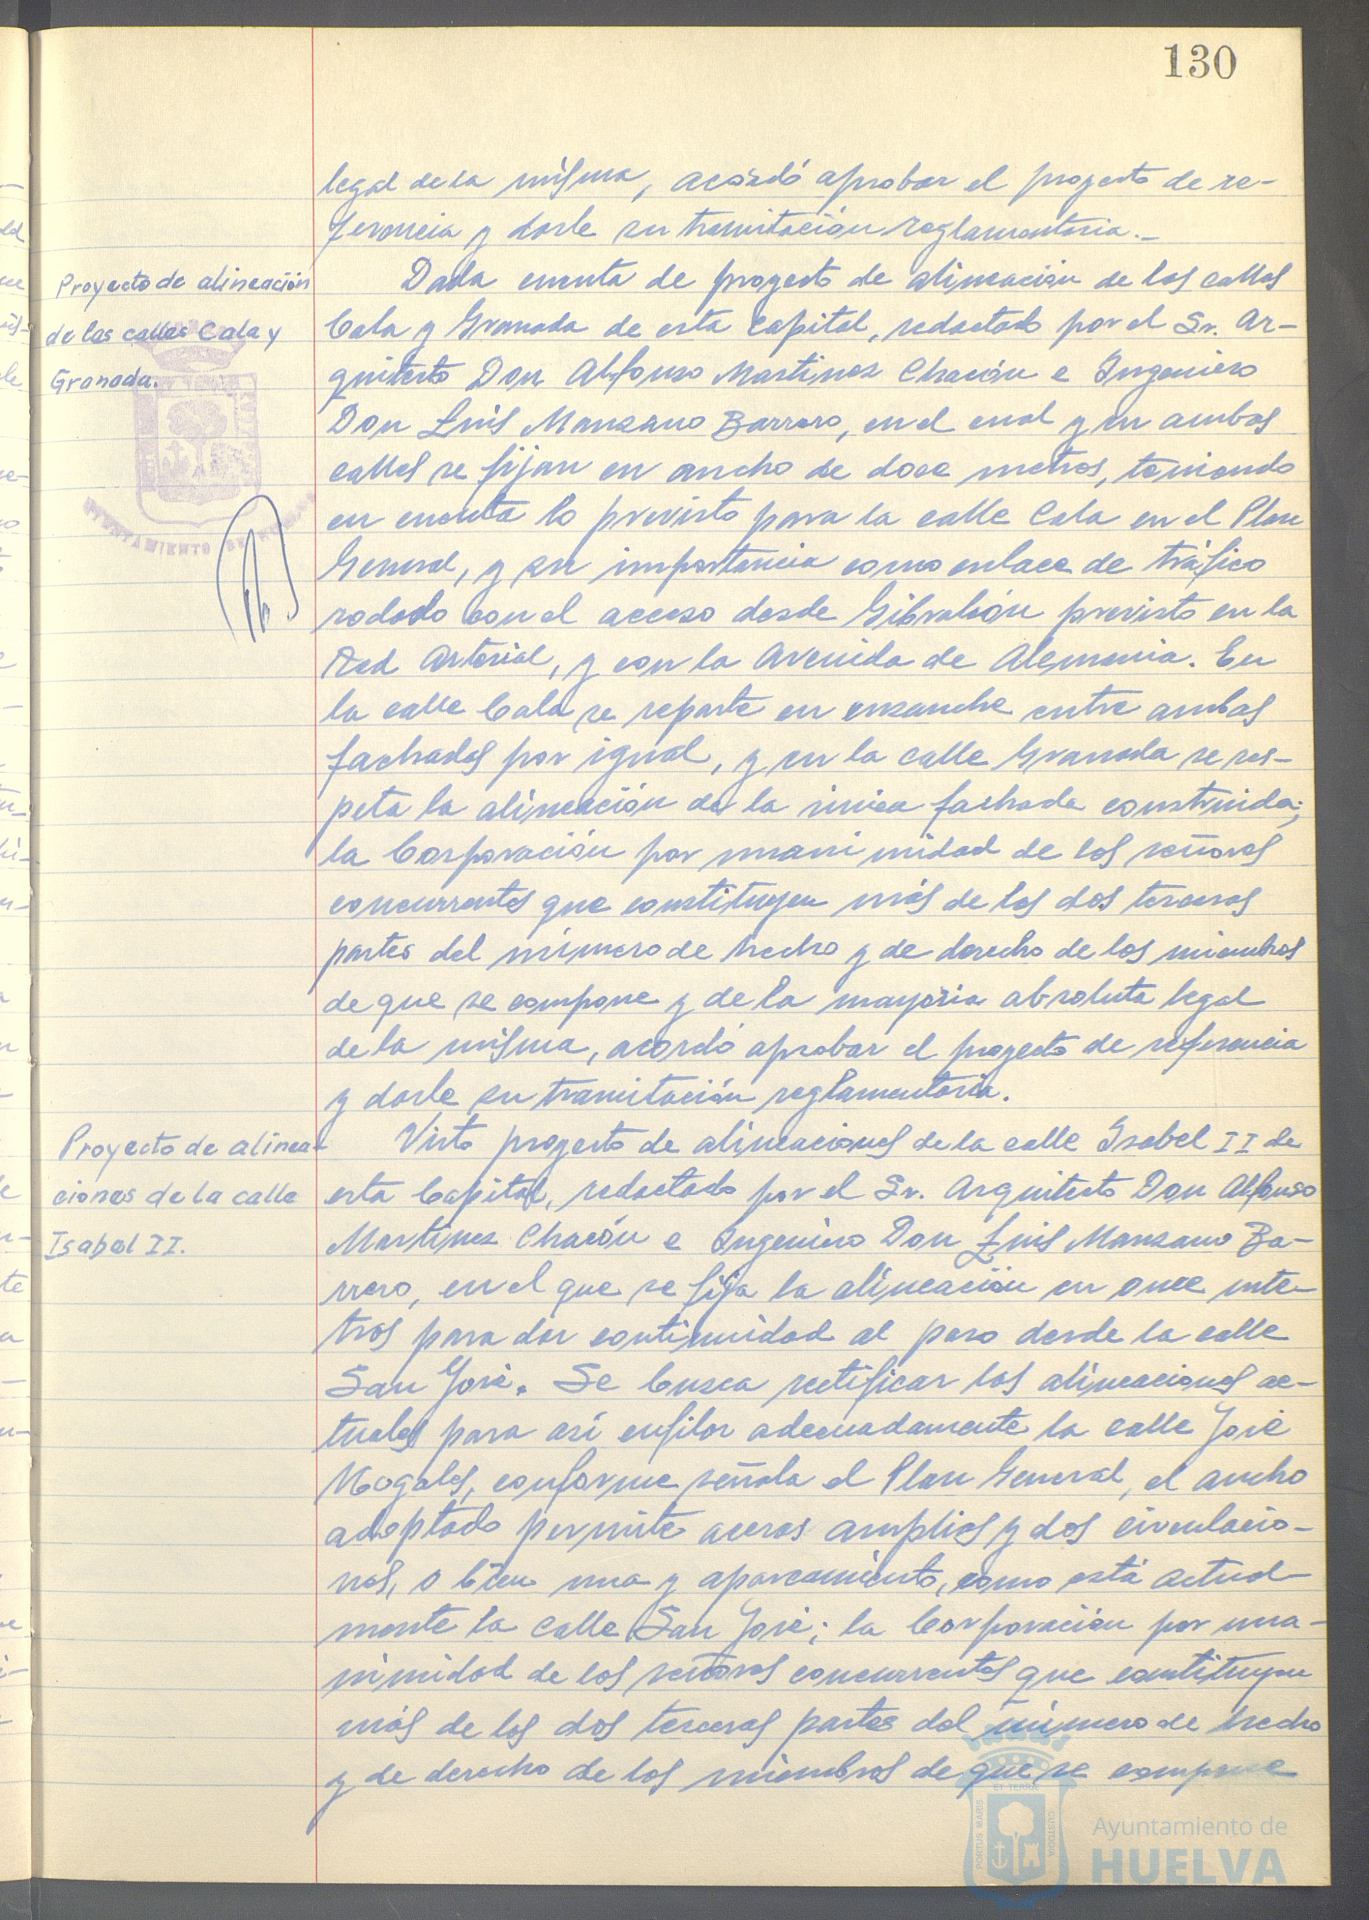 130
legal de la misma, acordó aprobar el proyecto de re-
ferencia y darle su tramitación reglamentaria.-
Proyecto de alineación
de las calles Cala y
Granada.
Dada cuenta de proyecto de alineación de las calles
Cala y Granada de esta capital, redactado por el Sr. Ar-
quitecto Don Alfonso Martinez Chacón e Ingeniero
Don Luis Manzano Barrero, en el cual y en ambas
calles se fijan en ancho de doce metros, teniendo
en cuenta lo previsto para la calle Cala en el Plan
General, y su importancia como enlace de tráfico
rodado con el acceso desde Gibraleón previsto en la
Red Arterial, y con la Avenida de Alemania. En
la calle Cala se reparte en ensanche entre ambas
fachadas por igual, y en la calle Granada se res-
peta la alineación de la única fachada construida;
la Corporación por unanimidad de los señores
concurrentes que constituyen más de las dos terceras
partes del número de hecho y de derecho de los miembros
de que se compone y de la mayoria absoluta legal
de la misma, acordó aprobar el proyecto de referencia
y darle su tramitación reglamentaria.
Proyecto de alinea-
ciones de la calle
Isabel II.
Visto proyecto de alineaciones de la calle Isabel II de
esta Capital, redactado por el Sr. Arquitecto Don Alfonso
Martinez Chacón e Ingeniero Don Luis Manzano Ba-
rrero, en el que se fija la alineación en once me-
tros para dar continuidad al paso desde la calle
San José. Se busca rectificar las alineaciones ac-
tuales para así enfilar adecuadamente la calle José
Nogales, conforme señala el Plan General, el ancho
adoptado permite aceras amplias y dos circulacio-
nes, o bien una y aparcamiento, como está actual-
mente la calle San José; la Corporación por una-
nimidad de los señores concurrentes que constituyen
más de las dos terceras partes del número de hecho
y de derecho de los miembros de que se compone
AYUNTAMIENTO DE HUELVA
PORTUS MARIS ET TERRAE CUSTODIA
Ayuntamiento de
HUELVA